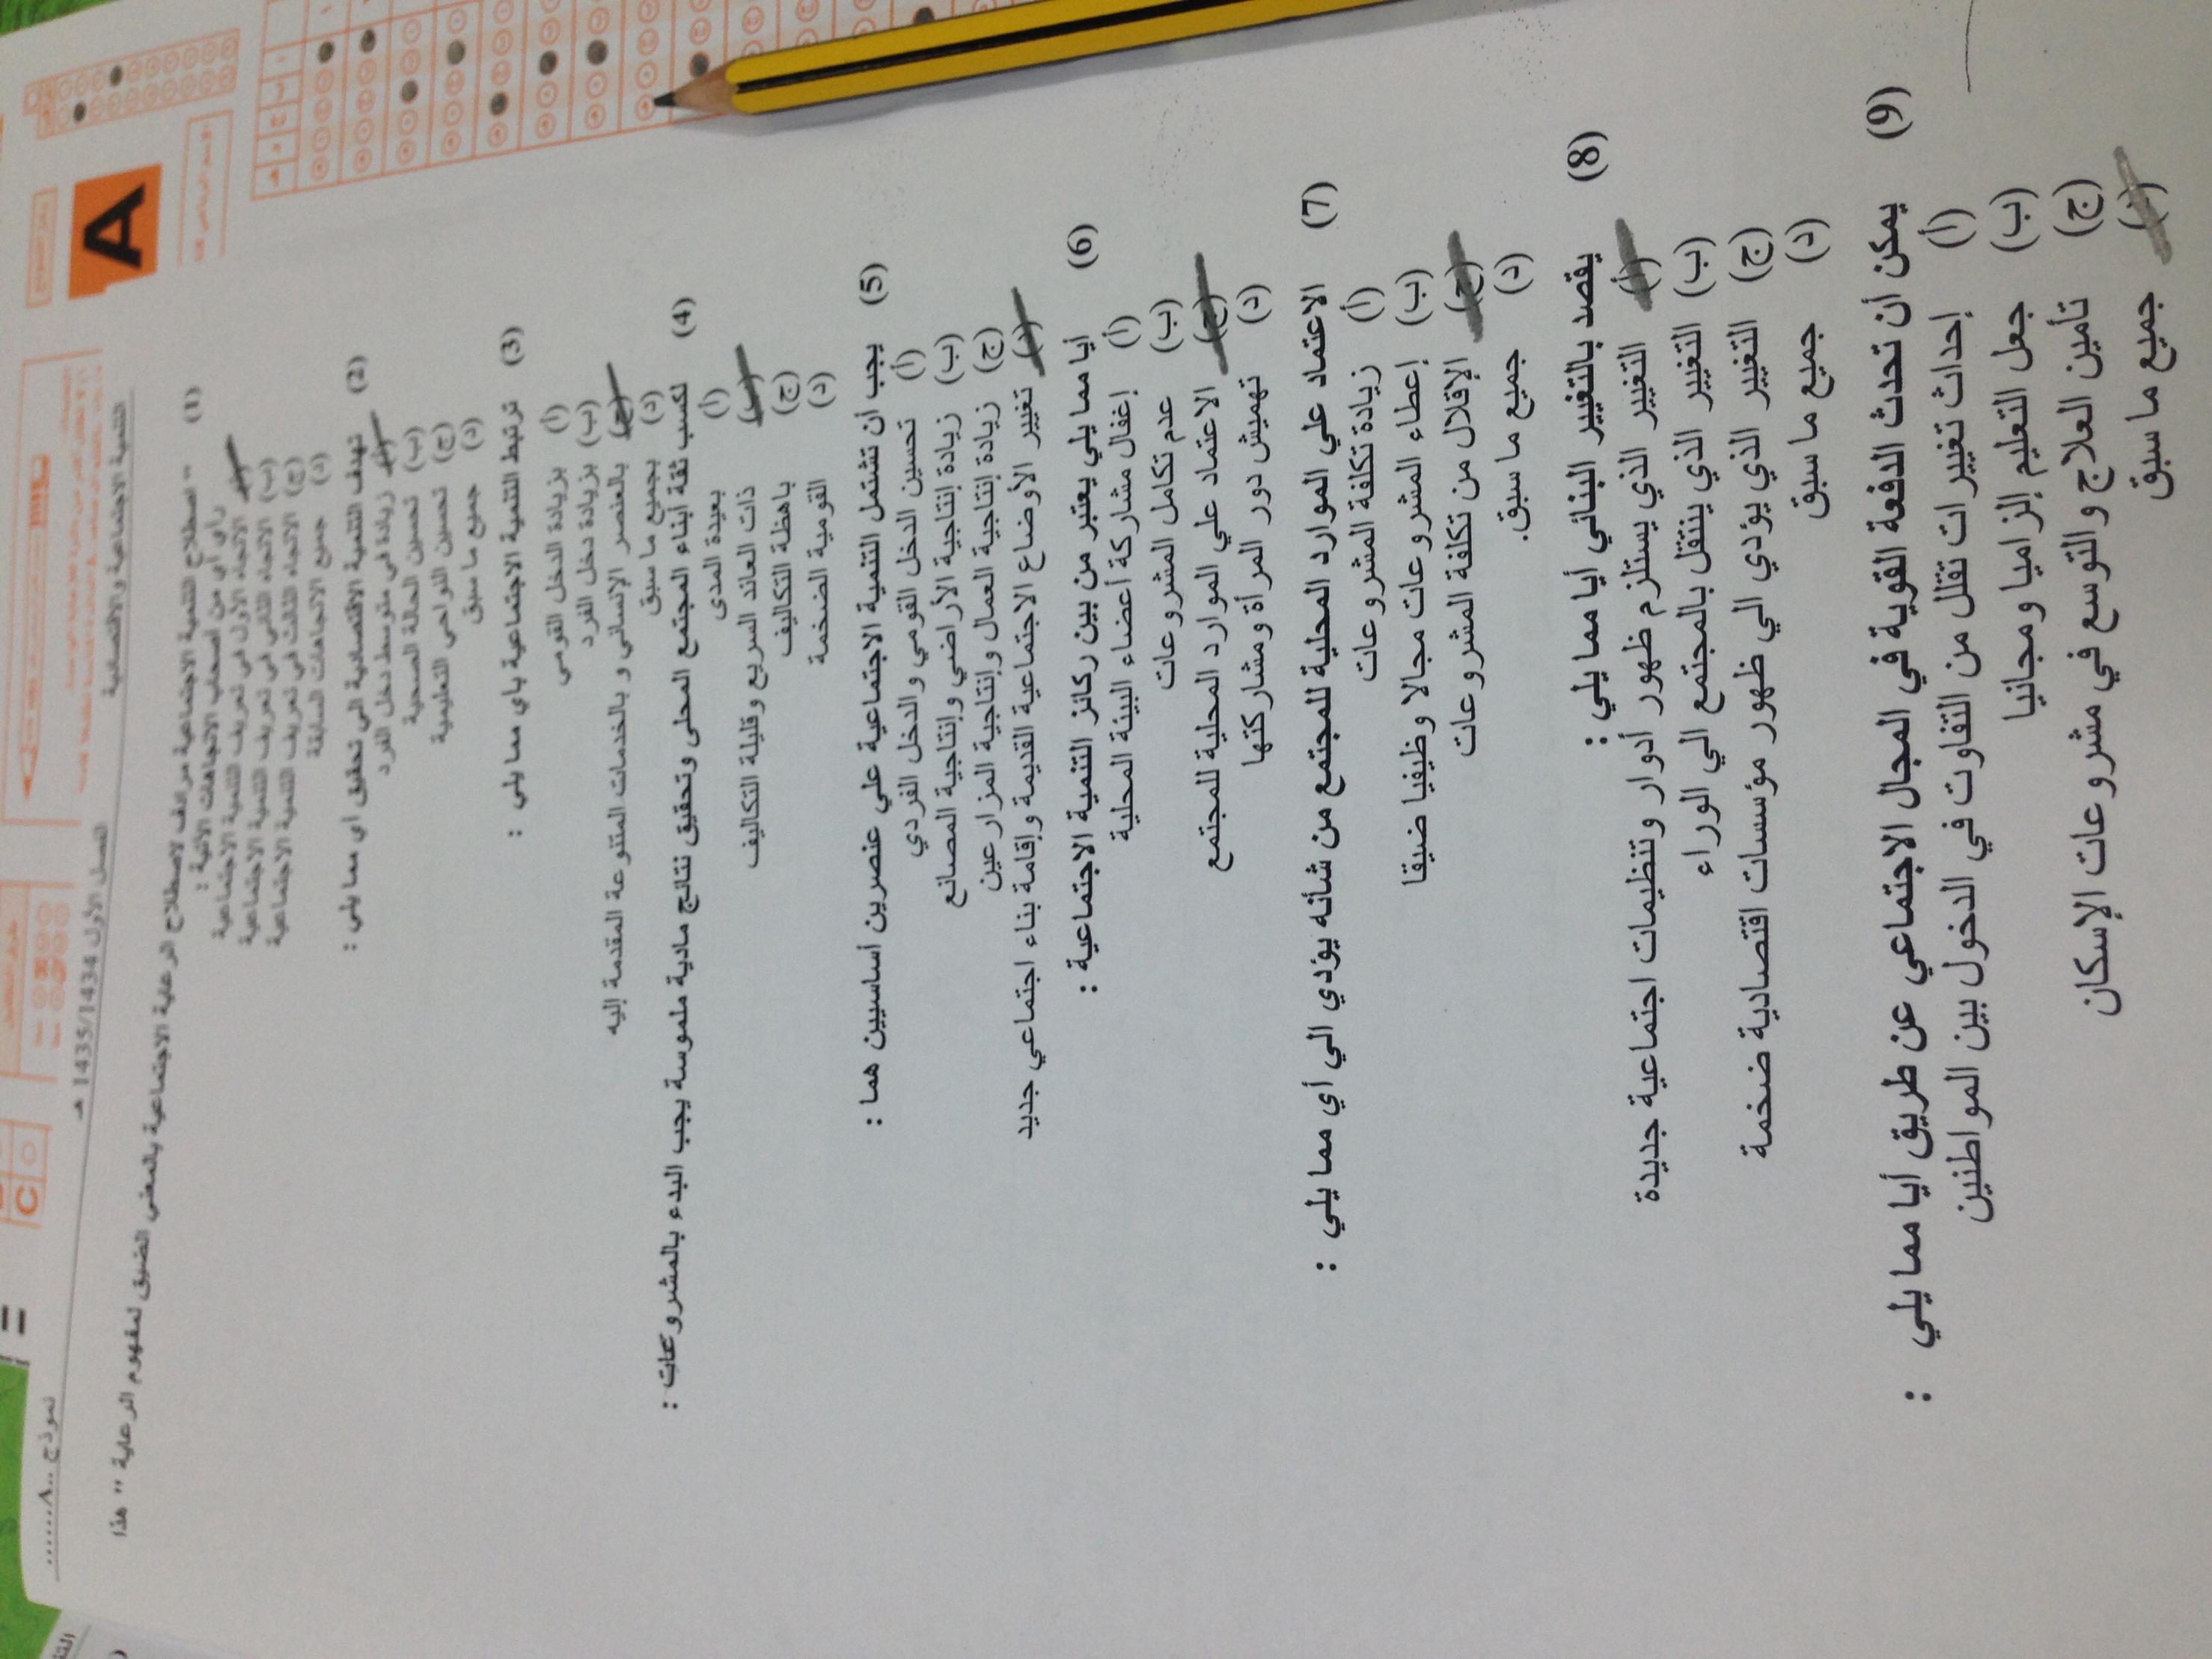 نموذج ..A.......
التنمية الاجتماعية والاقتصادية
الفصل الأول 1435/1434 هـ
A
C
(1) " اصطلاح التنمية الاجتماعية مرادف لاصطلاح الرعاية الاجتماعية بالمعنى الضيق لمفهوم الرعاية " هذا
رأي أي من أصحاب الاتجاهات الآتية :
(أ) الاتجاه الأول في تعريف التنمية الاجتماعية
(ب) الاتجاه الثاني في تعريف التنمية الاجتماعية
(ج) الاتجاه الثالث في تعريف التنمية الاجتماعية
(د) جميع الاتجاهات السابقة
(2) تهدف التنمية الاقتصادية الي تحقيق أي مما يلي :
(أ) زيادة في متوسط دخل الفرد
(ب) تحسين الحالة الصحية
(ج) تحسين النواحي التعليمية
(د) جميع ما سبق
(3) ترتبط التنمية الاجتماعية باي مما يلي :
(أ) بزيادة الدخل القومي
(ب) بزيادة دخل الفرد
(ج) بالعنصر الإنساني و بالخدمات المتنوعة المقدمة إليه
(د) بجميع ما سبق
(4) لكسب ثقة أبناء المجتمع المحلى وتحقيق نتائج مادية ملموسة يجب البدء بالمشروعات :
(أ) بعيدة المدى
(ب) ذات العائد السريع وقليلة التكاليف
(ج) باهظة التكاليف
(د) القومية الضخمة
(5) يجب أن تشتمل التنمية الاجتماعية علي عنصرين أساسيين هما :
(أ) تحسين الدخل القومي والدخل الفردي
(ب) زيادة إنتاجية الأراضي وإنتاجية المصانع
(ج) زيادة إنتاجية العمال وإنتاجية المزارعين
(د) تغيير الأوضاع الاجتماعية القديمة وإقامة بناء اجتماعي جديد
(6) أيا مما يلي يعتبر من بين ركائز التنمية الاجتماعية :
(أ) إغفال مشاركة أعضاء البيئة المحلية
(ب) عدم تكامل المشروعات
(ج) الاعتماد علي الموارد المحلية للمجتمع
(د) تهميش دور المرأة ومشاركتها
(7) الاعتماد علي الموارد المحلية للمجتمع من شأنه يؤدي الي أي مما يلي :
(أ) زيادة تكلفة المشروعات
(ب) إعطاء المشروعات مجالا وظيفيا ضيقا
(ج) الإقلال من تكلفة المشروعات
(د) جميع ما سبق.
(8) يقصد بالتغيير البنائي أيا مما يلي :
(أ) التغيير الذي يستلزم ظهور أدوار وتنظيمات اجتماعية جديدة
(ب) التغيير الذي ينتقل بالمجتمع الي الوراء
(ج) التغيير الذي يؤدي الي ظهور مؤسسات اقتصادية ضخمة
(د) جميع ما سبق
(9) يمكن أن تحدث الدفعة القوية في المجال الاجتماعي عن طريق أيا مما يلي :
(أ) إحداث تغييرات تقلل من التفاوت في الدخول بين المواطنين
(ب) جعل التعليم إلزاميا ومجانيا
(ج) تأمين العلاج والتوسع في مشروعات الإسكان
(د) جميع ما سبق